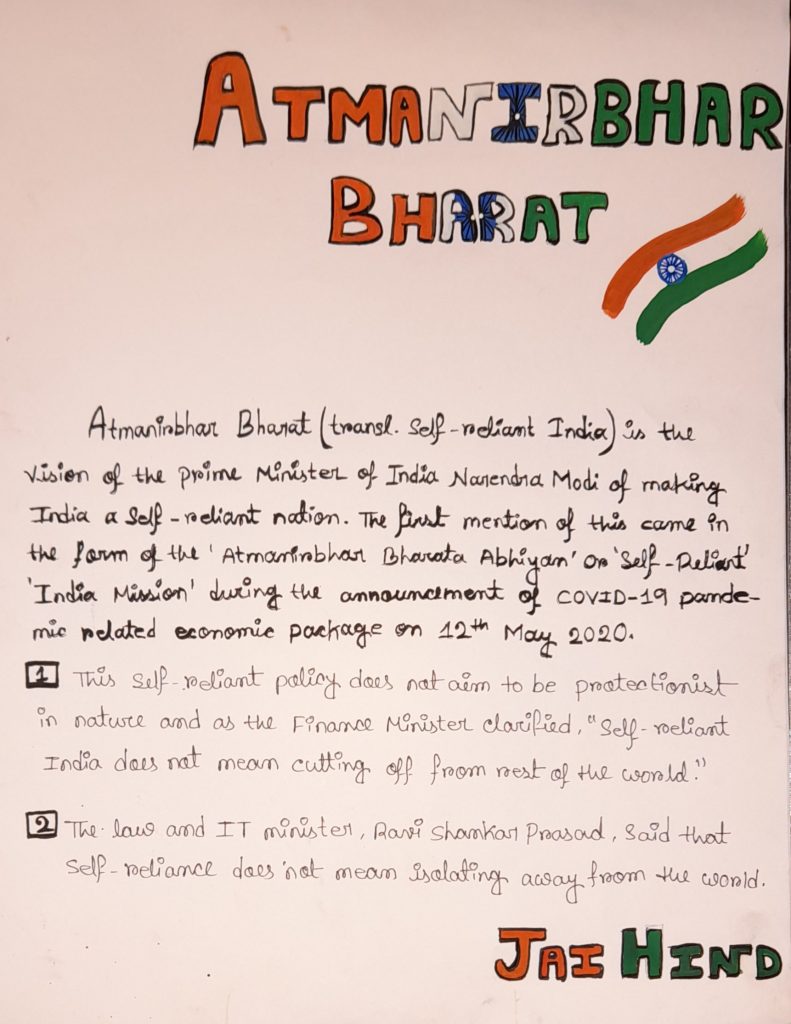 ATMANIRBHAR
BHARAT
Atmanirbhar Bharat (transl. Self-reliant India) is the
vision of the prime Minister of India Narendra Modi of making
India a Self-reliant nation. The first mention of this came in
the form of the 'Atmanirbhar Bharata Abhiyan' or 'Self-Reliant'
'India Mission' during the announcement of COVID-19 pande-
mic related economic package on 12th May 2020.
1 This Self-reliant policy does not aim to be protectionist
in nature and as the Finance Minister clarified, "Self-reliant
India does not mean cutting off from rest of the world."
2 The law and IT minister, Ravi Shankar Prasad, said that
Self-reliance does not mean isolating away from the world.
JAI HIND